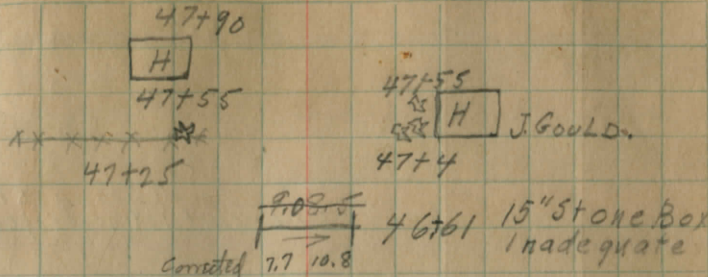 47+90
H
47+55
47+55
H J. GOULD.
47+25
47+4
9.0 8.5
46+61 15" Stone Box
Inadequate
Corrected 7.7 10.8